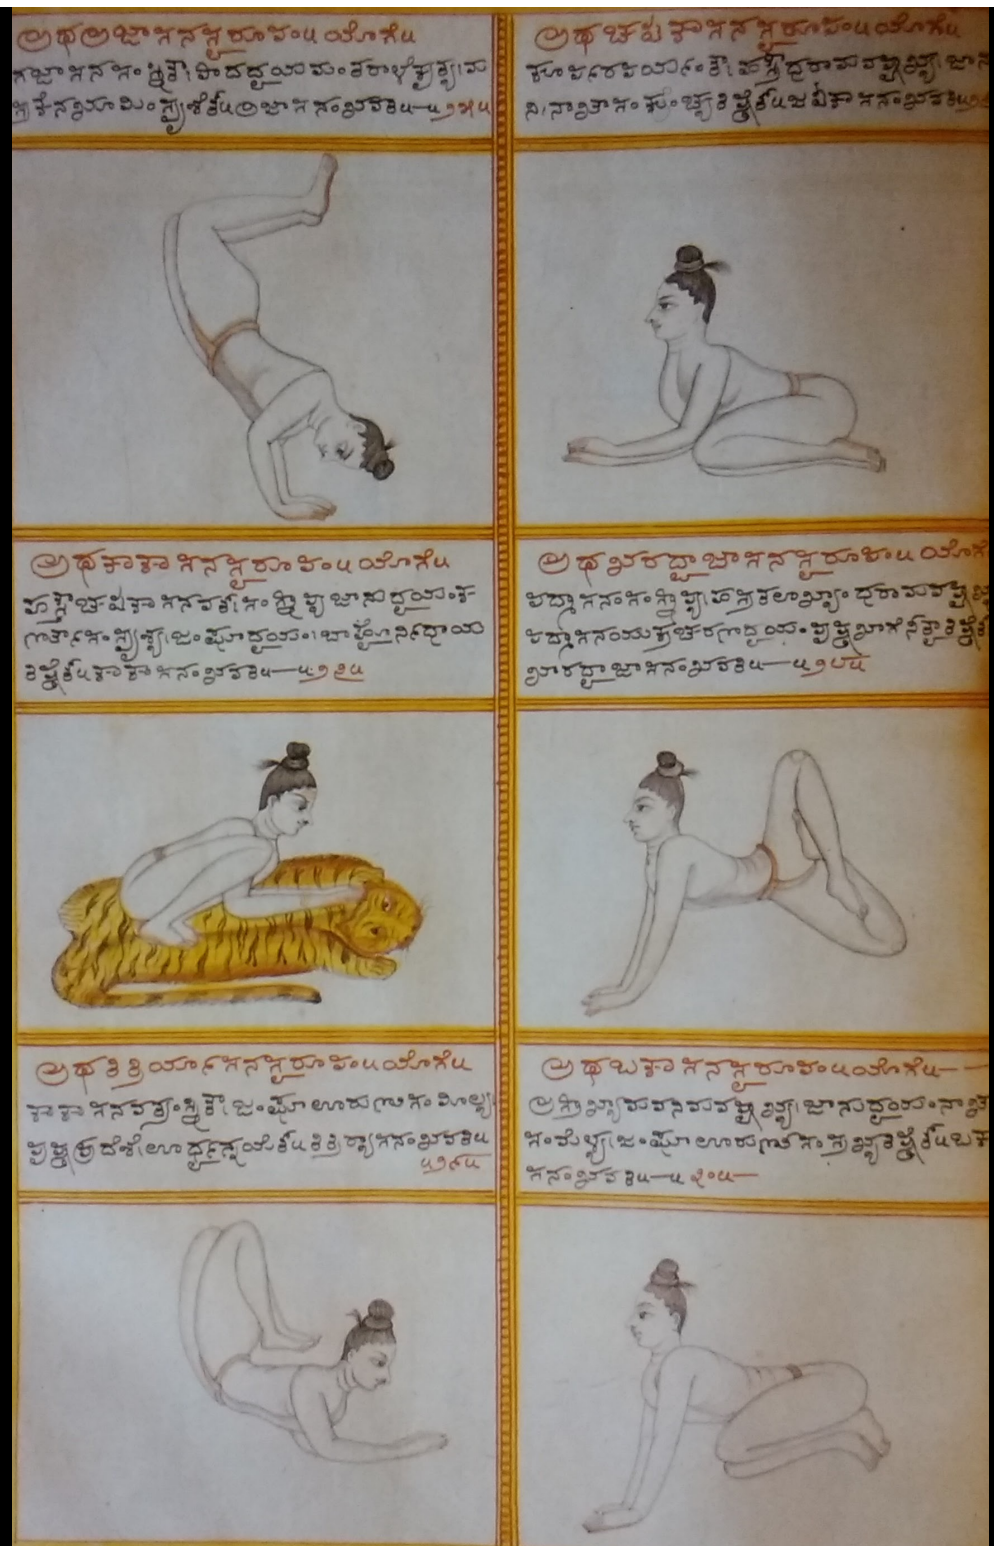 ಅಥ ಅಜಾಸನಸ್ವರೂಪಂ॥ ಯೋಗೇ॥
ಗಜಾಸನಸಂಸ್ಥಿತೌ। ಪಾದದ್ವಯಮಂತರಾಳೇಕೃತ್ವಾ। ವ
ಕ್ತ್ರೇನಭೂಮಿಂಸ್ಪೃಶೇತ್॥ ಅಜಾಸನಂಭವತಿ॥—॥೨೫॥
ಅಥ ಚಟಕಾಸನಸ್ವರೂಪಂ॥ ಯೋಗೇ॥
ಕೂರ್ಪರಪರ್ಯಂತೌ। ಹಸ್ತೌಧರಾಮವಷ್ಟಭ್ಯ। ಜಾನು
ನಿ। ನಾಭಿಸಂಕುಂಚ್ಯತಿಷ್ಠೇತ್॥ ಚಟಕಾಸನಂಭವತಿ॥
ಅಥ ಕಾಕಾಸನಸ್ವರೂಪಂ॥ ಯೋಗೇ॥
ಹಸ್ತೌಚಟಕಾಸನವತ್। ಸಂಸ್ಥಾಪ್ಯ ಜಾನುದ್ವಯಂ। ಕ
ರ್ಣಾಸಂಸ್ಪೃಶ್ಯ। ಜಂಘಾದ್ವಯಂ। ಬಾಹ್ವೋರ್ನಿಧಾಯ
ತಿಷ್ಠೇತ್॥ ಕಾಕಾಸನಂಭವತಿ॥—॥೨೭॥
ಅಥ ಭರದ್ವಾಜಾಸನಸ್ವರೂಪಂ॥ ಯೋಗೇ
ಪದ್ಮಾಸನಂಸಂಸ್ಥಾಪ್ಯ। ಹಸ್ತತಲಾಭ್ಯಾಂ ಧರಾಮವಷ್ಟಭ್ಯ
ಪದ್ಮಾಸನಯುಕ್ತಚರಣದ್ವಯಂ। ಪೃಷ್ಠಭಾಗೇನೀತ್ವಾತಿಷ್ಠೇತ್
ಭಾರದ್ವಾಜಾಸನಂಭವತಿ॥—॥೨೮॥
ಅಥ ತಿತ್ತಿರ್ಯಾಸನಸ್ವರೂಪಂ॥ ಯೋಗೇ॥
ಕಾಕಾಸನವತ್ಸಂಸ್ಥಿತೌ। ಜಂಘಾಊರುಣಿಸಂಮೀಲ್ಯ
ಪೃಷ್ಠಪ್ರದೇಶೇಊರ್ಧ್ವಂನಯೇತ್॥ ತಿತ್ತಿರ್ಯಾಸನಂಭವತಿ॥
॥೨೯॥
ಅಥ ಬಕಾಸನಸ್ವರೂಪಂ॥ ಯೋಗೇ॥——
ಹಸ್ತಾಭ್ಯಾಮವನಿಮವಷ್ಟಭ್ಯ। ಜಾನುದ್ವಯಂ। ನಾಭಿ
ಸಂಮೇಲ್ಯ। ಜಂಘಾಊರುಣಿಸಂಸ್ತಭ್ಯತಿಷ್ಠೇತ್॥ ಬಕಾ
ಸನಂಭವತಿ॥—॥೩೦॥—